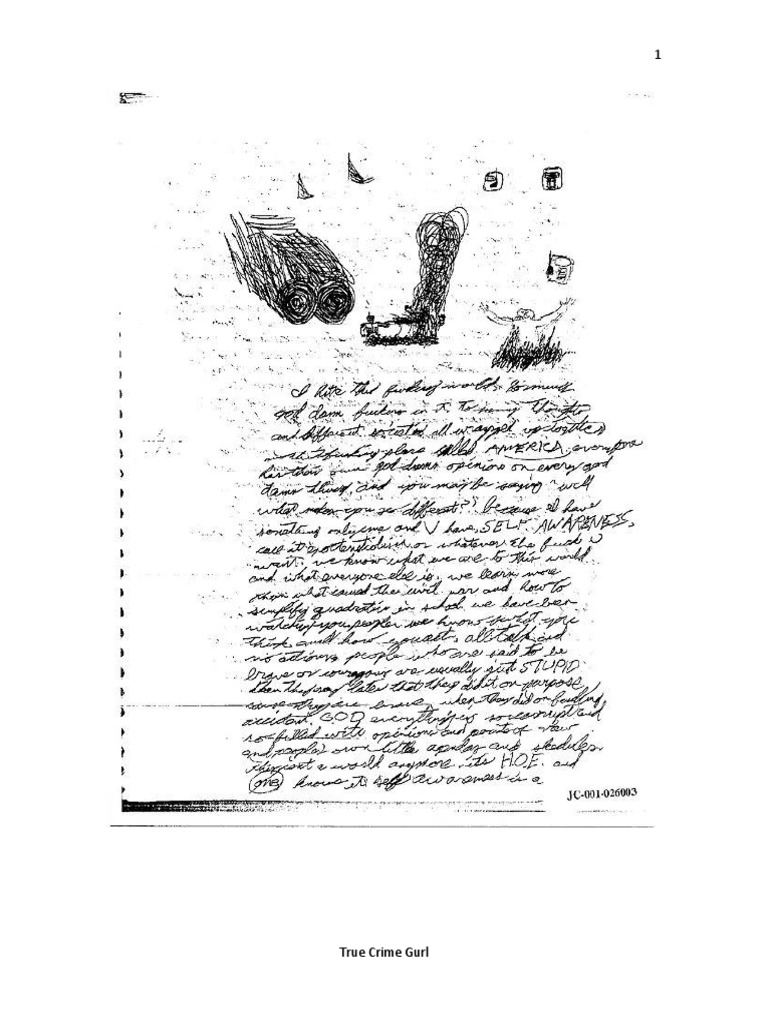 1
I hate this fucking world, so much
god damn fuckers in it. To many thoughts
and different societies all wrapped up together
in this fucking place called AMERICA. everyone
has their own god damn opinions on every god
damn thing and you may be saying "well
what makes you so different?" because I have
something only me and V have, SELF AWARENESS,
call it existentialism or whatever the fuck u
want. we know what we are to this world
and what everyone else is. we learn more
than what caused the civil war and how to
simplify quadratics in school. we have been
watching you people. we know what you
think and how you act, all talk and
no actions. people who are said to be
brave or courageous are usually just STUPID
then they say later that they did it on purpose
cause they are brave, when they did it on fucking
accident. GOD everything is so corrupt and
so filled with opinions and points of view
and people's own little agendas and shedules.
this isnt a world anymore. its H.O.E. and
one knows it. self awareness is a
JC-001-026003
True Crime Gurl